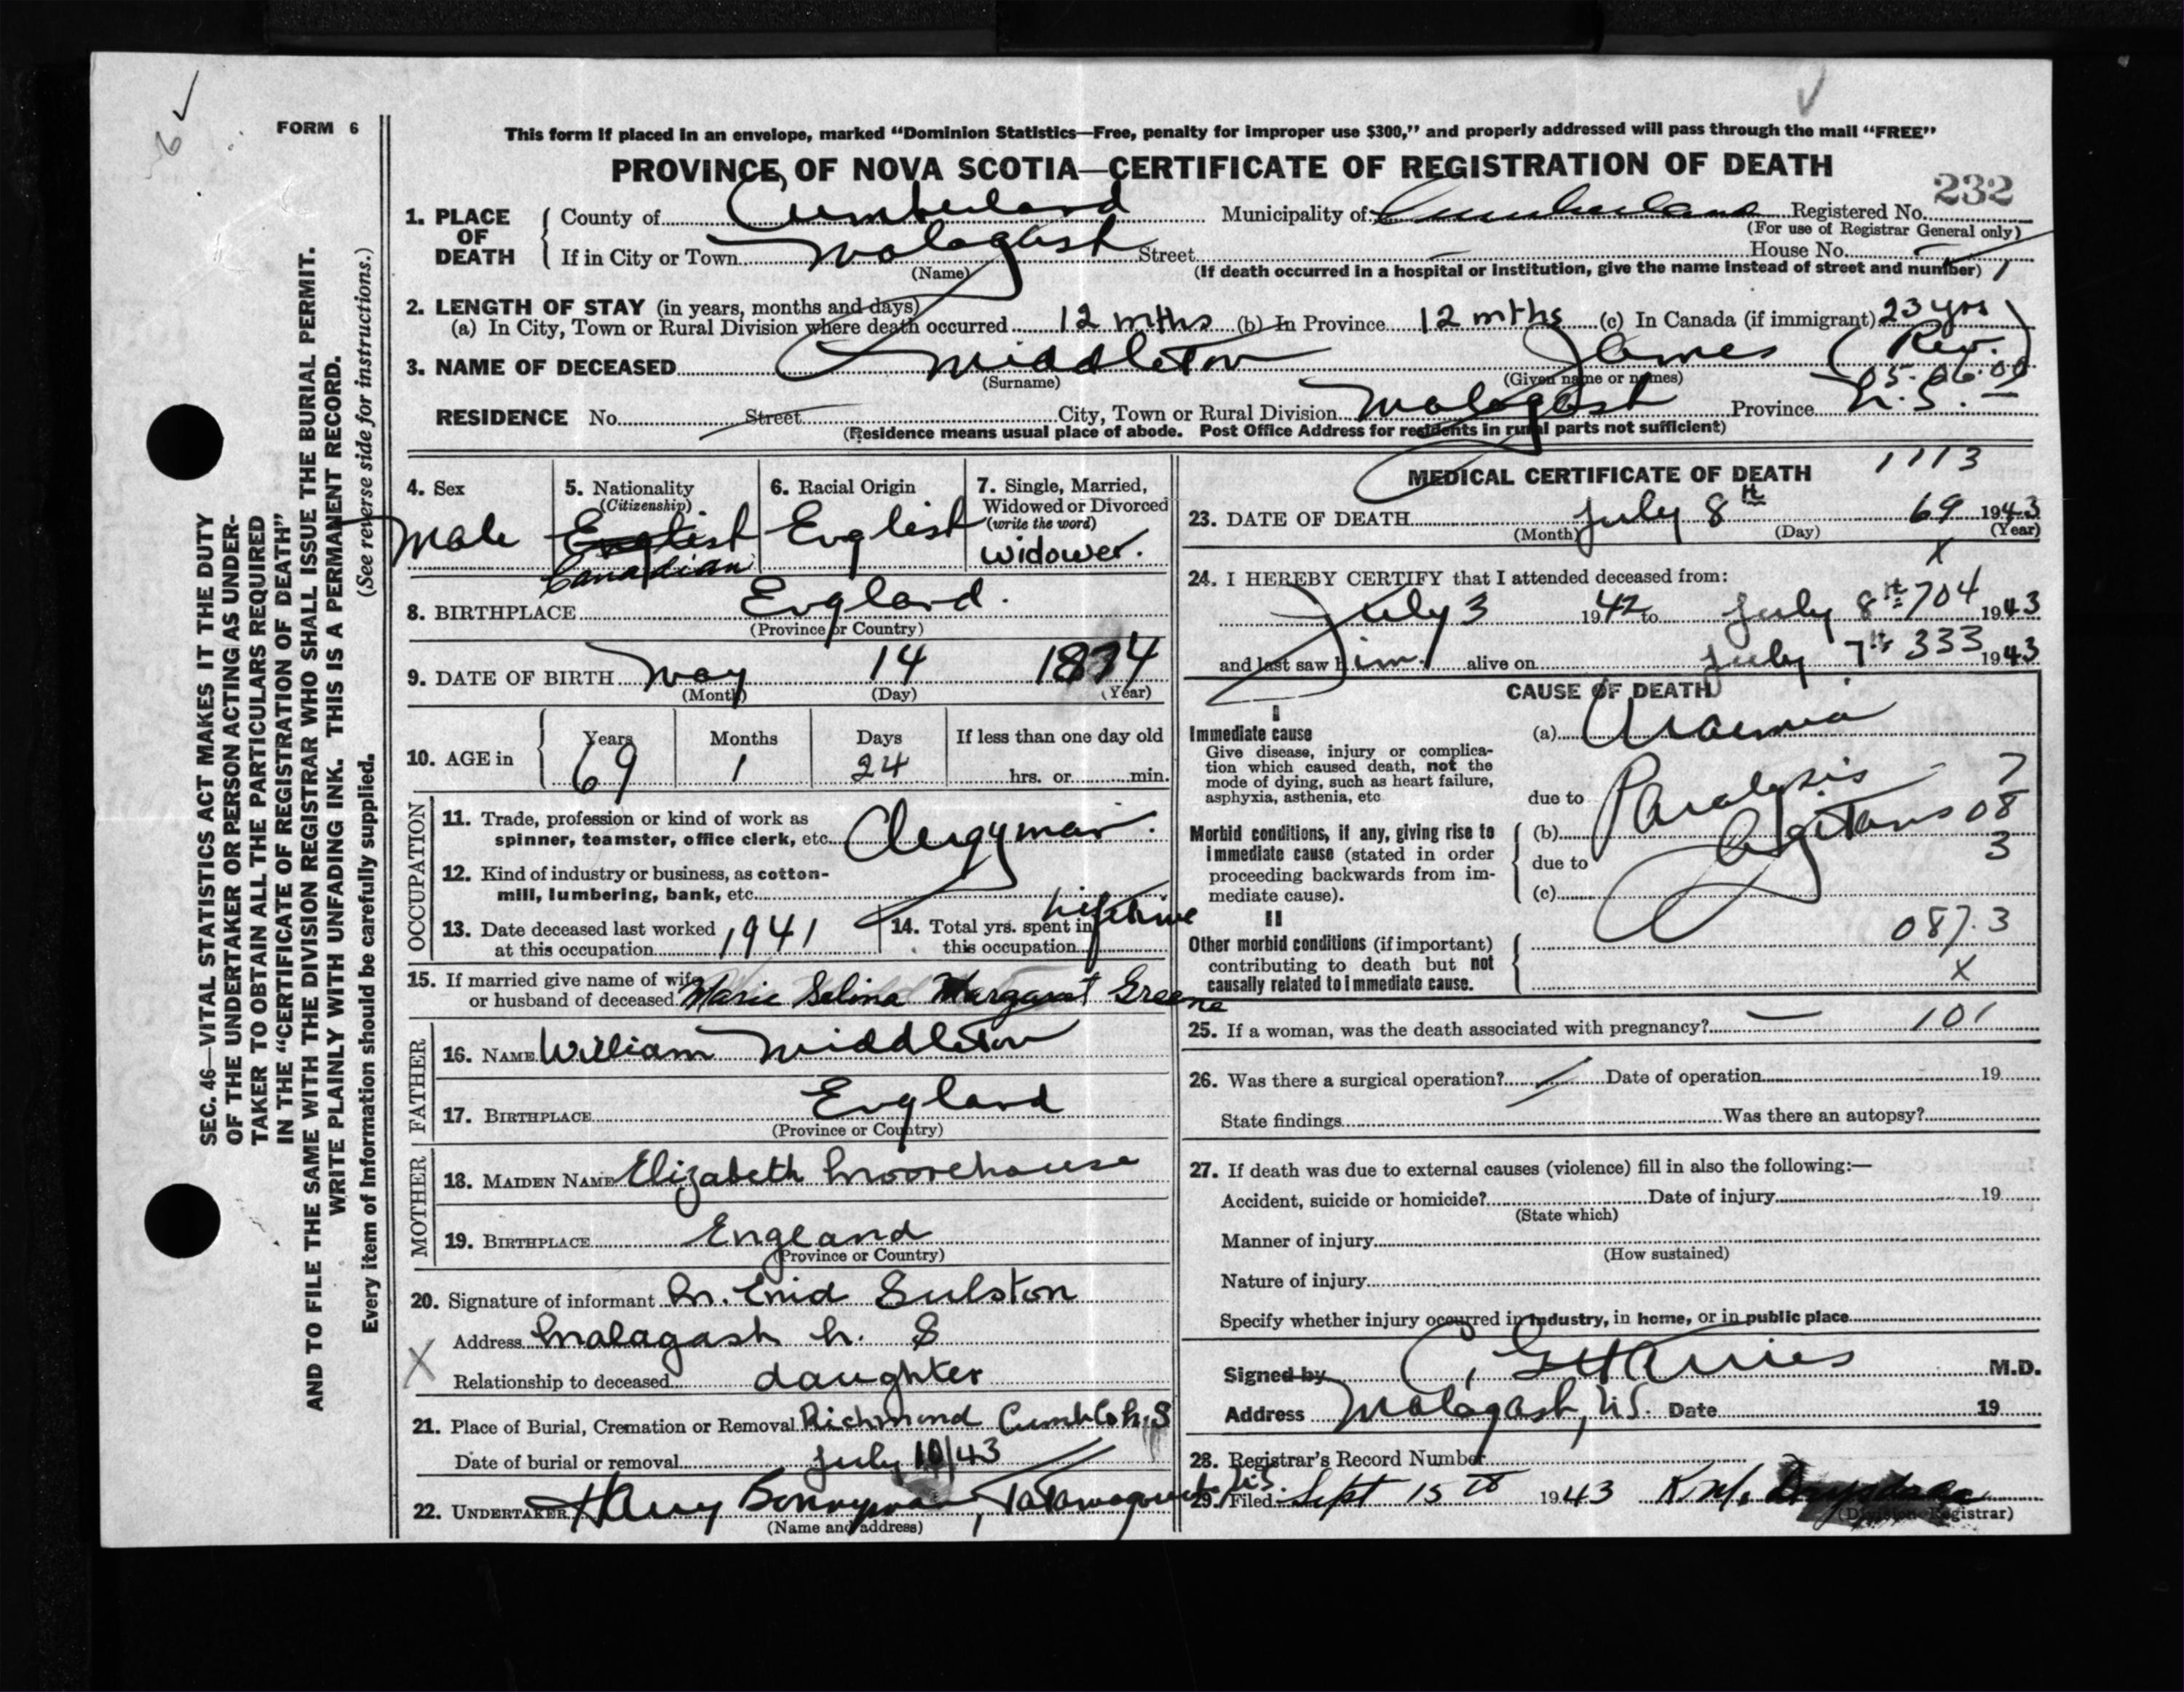 FORM 6
This form if placed in an envelope, marked "Dominion Statistics—Free, penalty for improper use $300," and properly addressed will pass through the mail "FREE"
PROVINCE OF NOVA SCOTIA—CERTIFICATE OF REGISTRATION OF DEATH
232
1. PLACE OF DEATH County of Cumberland Municipality of Cumberland Registered No.
(For use of Registrar General only)
If in City or Town Malagash Street — House No.
(Name) (If death occurred in a hospital or institution, give the name instead of street and number)
2. LENGTH OF STAY (in years, months and days)
(a) In City, Town or Rural Division where death occurred 12 mths (b) In Province 12 mths (c) In Canada (if immigrant) 23 yrs
3. NAME OF DECEASED Middleton James (Rev.)
(Surname) (Given name or names)
05.06.00
RESIDENCE No. Street City, Town or Rural Division Malagash Province N.S.
(Residence means usual place of abode. Post Office Address for residents in rural parts not sufficient)
4. Sex Male
5. Nationality (Citizenship) English Canadian
6. Racial Origin English
7. Single, Married, Widowed or Divorced (write the word) Widower.
8. BIRTHPLACE England.
(Province or Country)
9. DATE OF BIRTH May 14 1874
(Month) (Day) (Year)
10. AGE in Years 69 Months 1 Days 24 If less than one day old hrs. or min.
OCCUPATION
11. Trade, profession or kind of work as
spinner, teamster, office clerk, etc. Clergyman.
12. Kind of industry or business, as cotton-
mill, lumbering, bank, etc.
13. Date deceased last worked at this occupation 1941
14. Total yrs. spent in this occupation lifetime
15. If married give name of wife
or husband of deceased Marie Selina Margaret Greene
FATHER
16. NAME William Middleton
17. BIRTHPLACE England
(Province or Country)
MOTHER
18. MAIDEN NAME Elizabeth Moorehouse
19. BIRTHPLACE England
(Province or Country)
20. Signature of informant M. Enid Sulston
Address Malagash N. S
X
Relationship to deceased daughter
21. Place of Burial, Cremation or Removal Richmond Cumb Co N.S
Date of burial or removal July 10/43
22. UNDERTAKER Harry Bonnyman, Tatamagouche N.S.
(Name and address)
MEDICAL CERTIFICATE OF DEATH
1113
23. DATE OF DEATH July 8th 69 1943
(Month) (Day) (Year)
X
24. I HEREBY CERTIFY that I attended deceased from:
July 3 1942 to July 8th 704 1943
and last saw him alive on July 7th 333 1943
CAUSE OF DEATH
I
Immediate cause
Give disease, injury or complica-
tion which caused death, not the
mode of dying, such as heart failure,
asphyxia, asthenia, etc
(a) Uraemia
due to
Morbid conditions, if any, giving rise to
immediate cause (stated in order
proceeding backwards from im-
mediate cause).
(b) Paralysis Agitans
due to
(c)
7
08
3
II
Other morbid conditions (if important)
contributing to death but not
causally related to immediate cause.
087.3
X
25. If a woman, was the death associated with pregnancy? — 101
26. Was there a surgical operation? Date of operation 19
State findings Was there an autopsy?
27. If death was due to external causes (violence) fill in also the following:—
Accident, suicide or homicide? Date of injury 19
(State which)
Manner of injury
(How sustained)
Nature of injury
Specify whether injury occurred in industry, in home, or in public place
Signed by M.D.
Address Malagash, N.S. Date 19
28. Registrar's Record Number
29. Filed Sept 15th 1943
(Division Registrar)
SEC. 46—VITAL STATISTICS ACT MAKES IT THE DUTY
OF THE UNDERTAKER OR PERSON ACTING AS UNDER-
TAKER TO OBTAIN ALL THE PARTICULARS REQUIRED
IN THE "CERTIFICATE OF REGISTRATION OF DEATH"
AND TO FILE THE SAME WITH THE DIVISION REGISTRAR WHO SHALL ISSUE THE BURIAL PERMIT.
WRITE PLAINLY WITH UNFADING INK. THIS IS A PERMANENT RECORD.
(See reverse side for instructions.)
Every item of information should be carefully supplied.